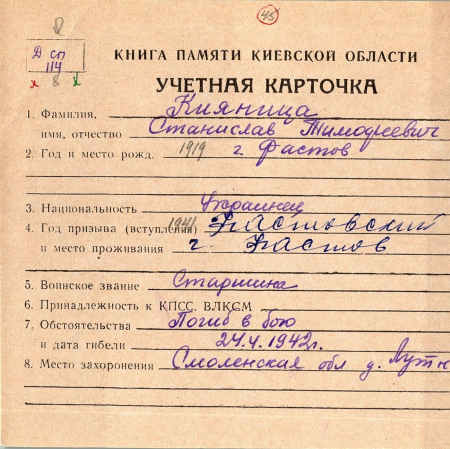 45
Д сп
114
х 8 х
КНИГА ПАМЯТИ КИЕВСКОЙ ОБЛАСТИ
УЧЕТНАЯ КАРТОЧКА
1. Фамилия, Кияница
имя, отчество Станислав Тимофеевич
2. Год и место рожд. 1919 г. Фастов
3. Национальность Украинец
4. Год призыва (вступления) 1941 Фастовский
и место проживания г. Фастов
5. Воинское звание Старшина
6. Принадлежность к КПСС, ВЛКСМ
7. Обстоятельства Погиб в бою
и дата гибели 24.4.1942г.
8. Место захоронения Смоленская обл д.